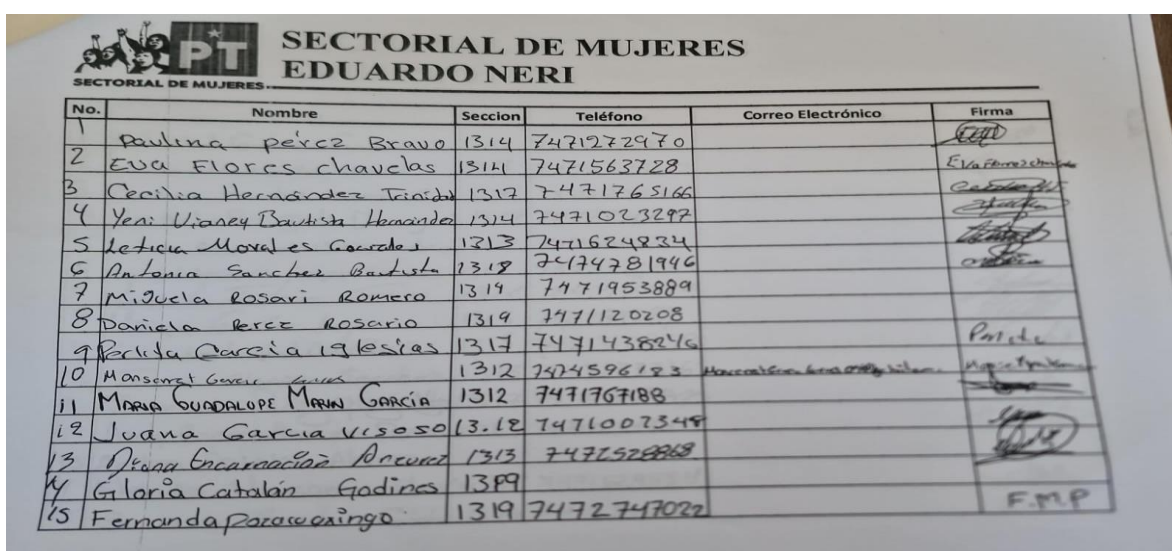 PT
SECTORIAL DE MUJERES
SECTORIAL DE MUJERES
EDUARDO NERI
No. Nombre Seccion Teléfono Correo Electrónico Firma
1 Paulina pérez Bravo 1314 7471272970
2 Eva Flores chavelas 1314 7471563728 Eva Flores
3 Cecilia Hernández Trinidad 1317 7471765166
4 Yeni Vianey Bautista Hernández 1314 7471023297
5 Leticia Morales 1313 7471624834
6 Antonia Sanchez Bautista 1318 7474781946
7 Miguela Rosari Romero 1319 7471953889
8 Daniela Perez Rosario 1319 7471120208
9 Perlita Garcia iglesias 1317 7471438246
10 Monserrat Garcia 1312
11 MARIA GUADALUPE MARIN GARCÍA 1312 7471767188
12 Juana Garcia visoso 13.12 7471002348
13 Diana Encarnación 1313
14 Gloria Catalán Godines 1319
15 Fernanda 1319 7472747022 F.M.P